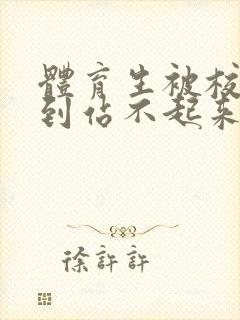 體育生被校
到佔不起來
徐許許